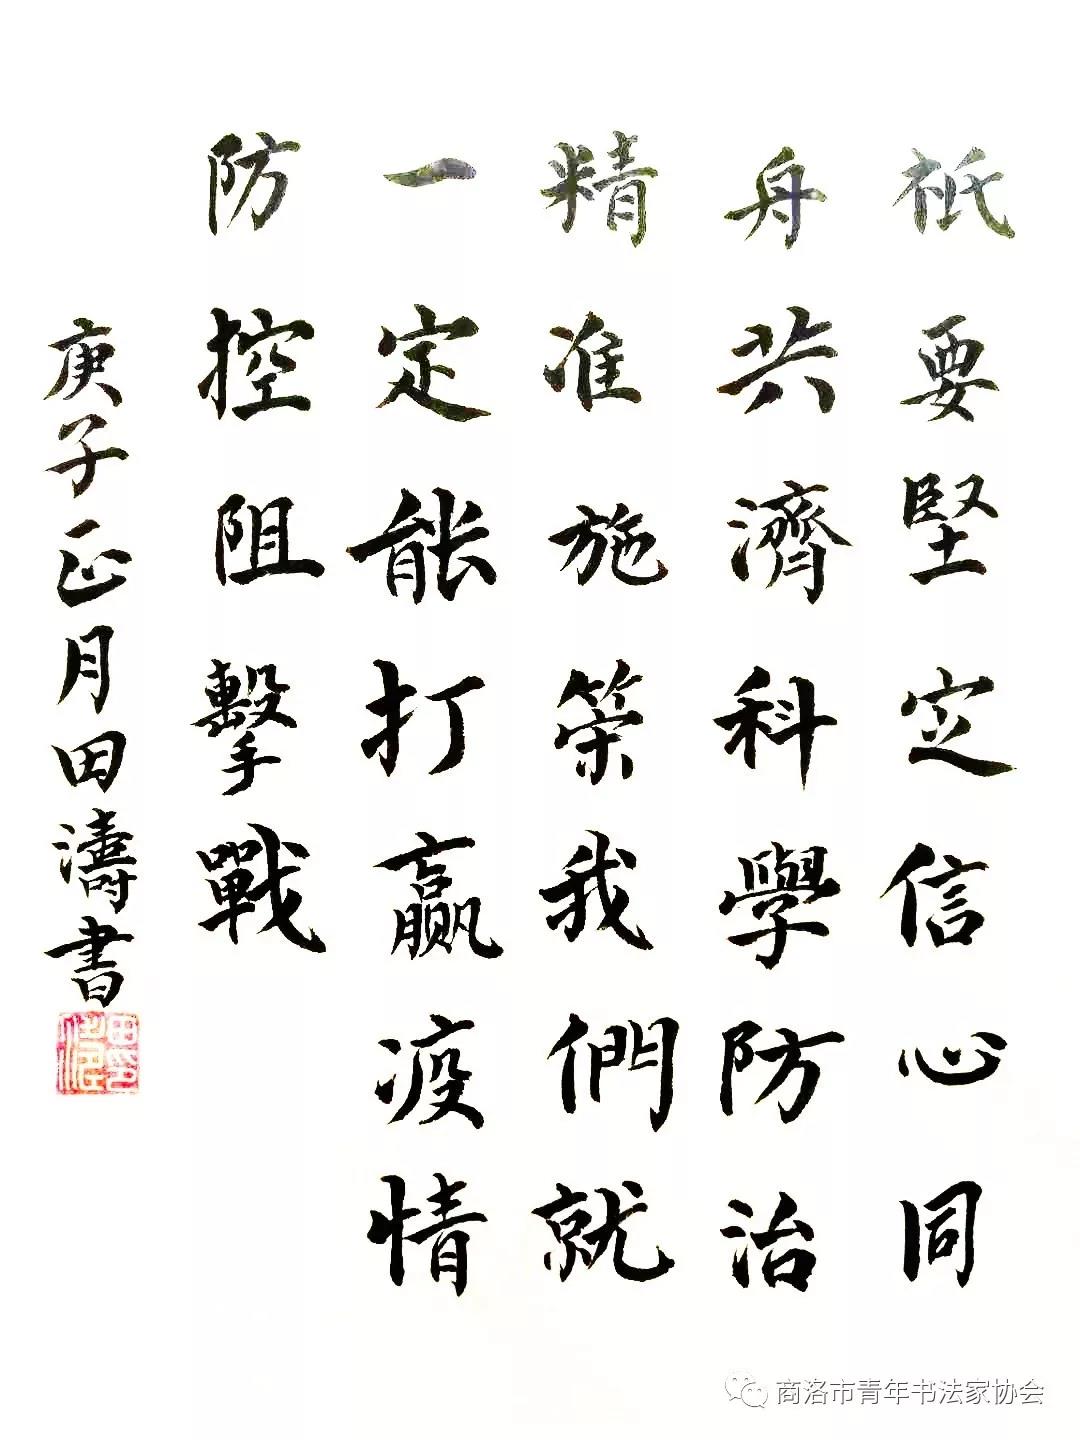 祇要堅定信心同
舟共濟科學防治
精准施策我們就
一定能打赢疫情
防控阻擊戰
庚子正月田濤書
商洛市青年书法家协会